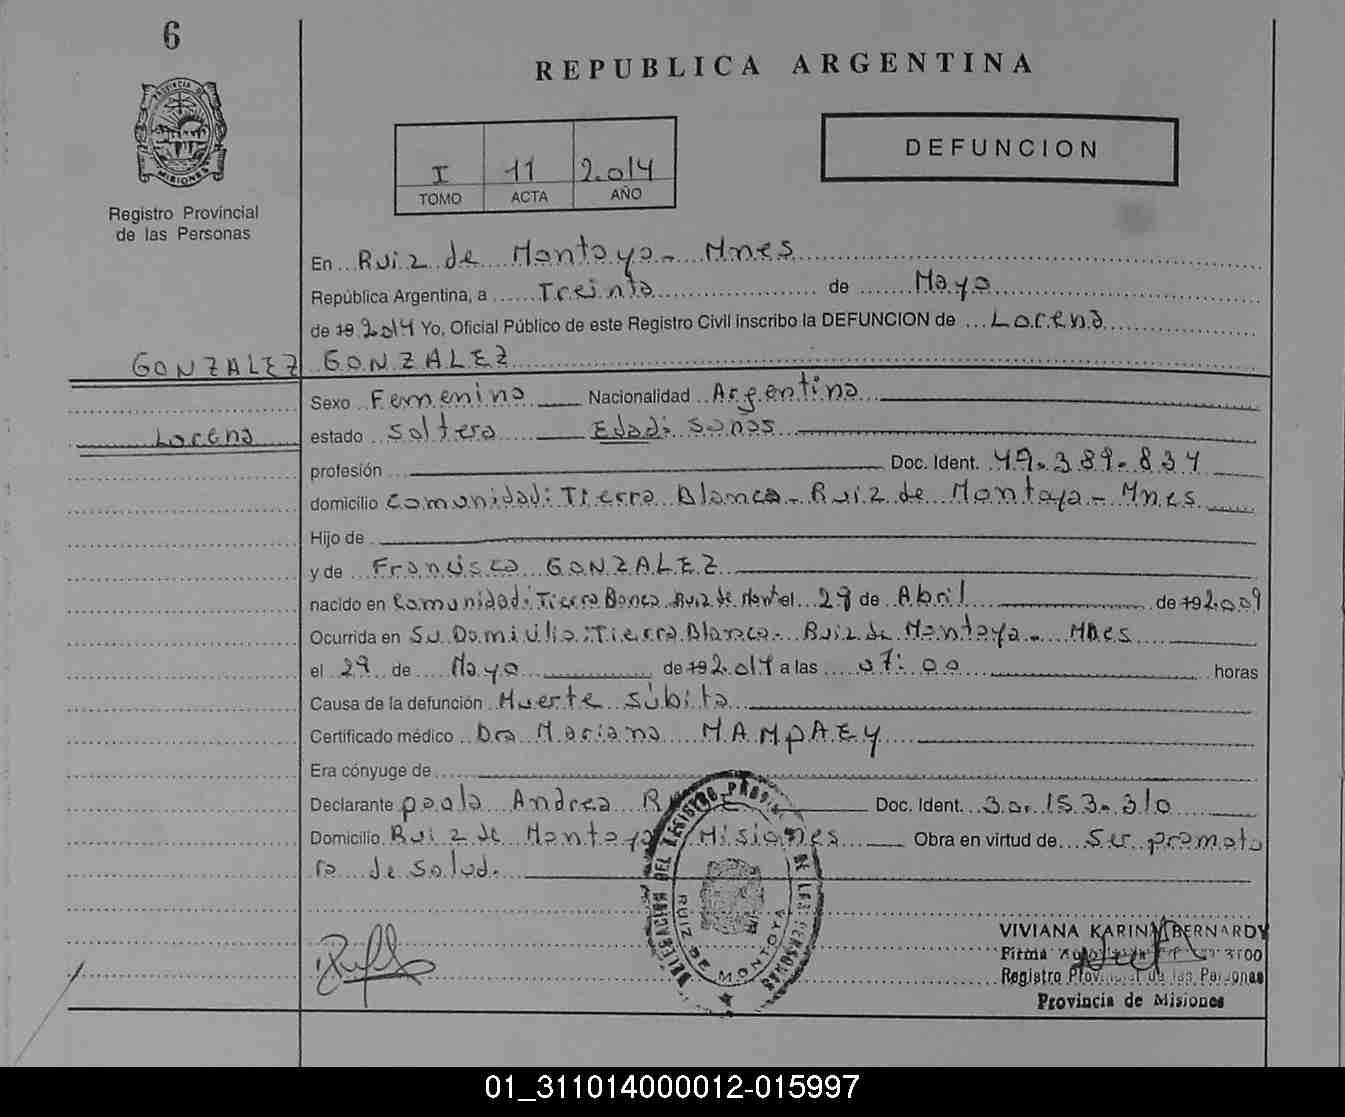 6
PROVINCIA DE
MISIONES
Registro Provincial
de las Personas
REPUBLICA ARGENTINA
I 11 2.014
TOMO ACTA AÑO
DEFUNCION
En Ruiz de Montoya - Mnes
República Argentina, a Treinta de Mayo
de 19 2014 Yo, Oficial Público de este Registro Civil inscribo la DEFUNCION de Lorena
GONZALEZ GONZALEZ
Sexo Femenino Nacionalidad Argentina
Lorena
estado Soltera Edad: 5 años
profesión Doc. Ident. 49.389.834
domicilio Comunidad: Tierra Blanca - Ruiz de Montoya - Mnes
Hijo de
y de Francisco GONZALEZ
nacido en Comunidad: Tierra Banca Ruiz de Mont el 29 de Abril de 19 2.009
Ocurrida en Su Domicilio: Tierra Blanca - Ruiz de Montoya - Mnes
el 29 de Mayo de 19 2.014 a las 07:00 horas
Causa de la defunción Muerte súbita
Certificado médico Dra Mariana MAMPAEY
Era cónyuge de
Declarante Paola Andrea Doc. Ident. 30.153.310
Domicilio Ruiz de Montoya Misiones Obra en virtud de Ser promoto
ra de Salud.
DELEGACION DEL REGISTRO PROVINCIAL DE LAS PERSONAS
RUIZ DE MONTOYA
VIVIANA KARINA BERNARDY
Firma
Registro Provincial de las Personas
Provincia de Misiones
01_311014000012-015997